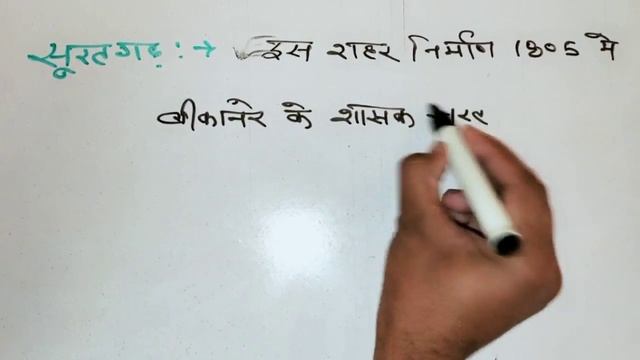 सूरतगढ़ :→ इस शहर निर्माण 1805 मे
बीकानेर के शासक